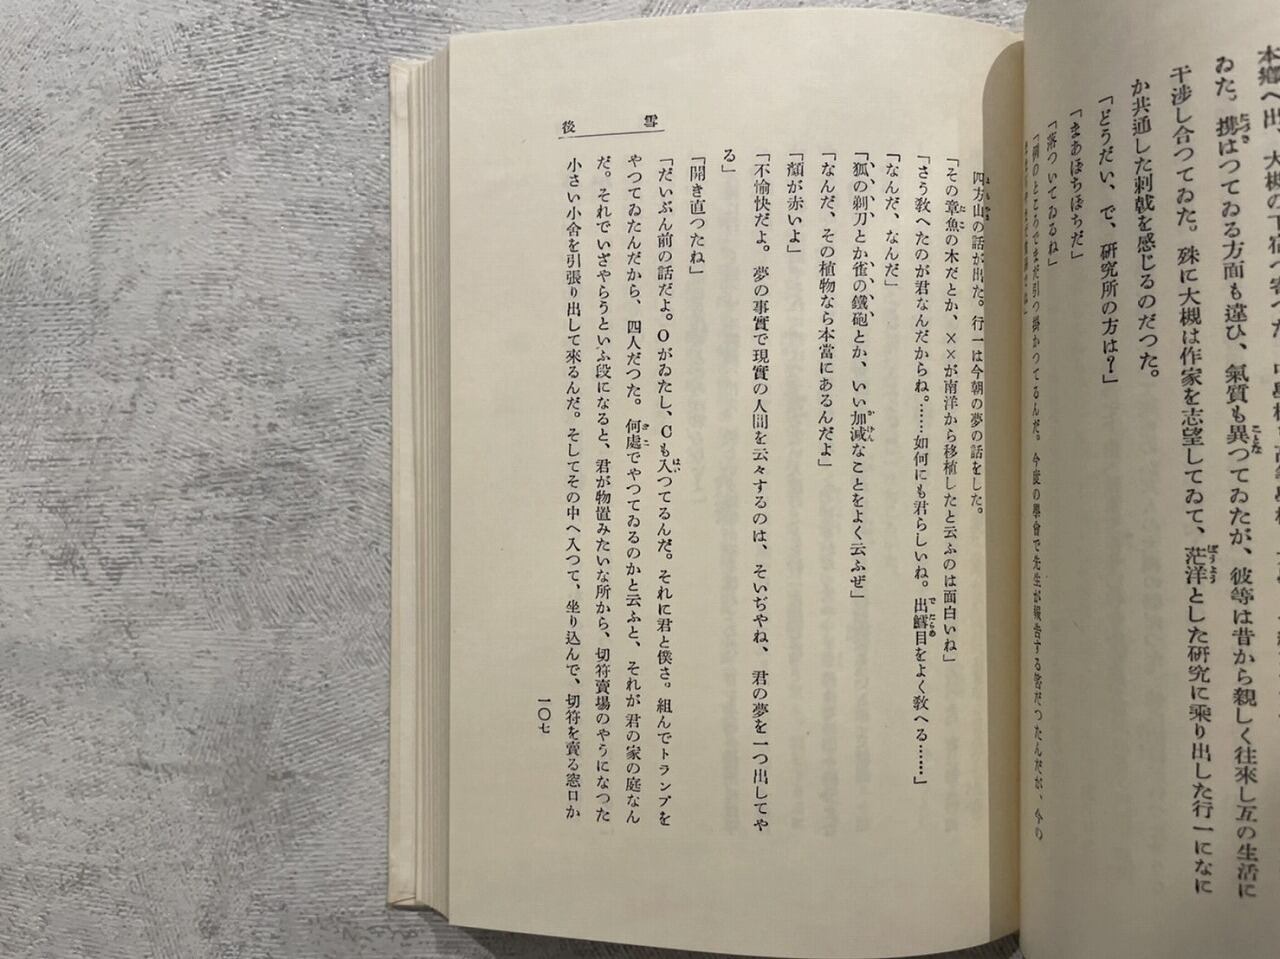 本鄕へ出、大槻の下宿へ寄つた。
ゐた。携はつてゐる方面も違ひ、氣質も異つてゐたが、彼等は昔から親しく往來し互の生活に
干涉し合つてゐた。殊に大槻は作家を志望してゐて、茫洋とした研究に乘り出した行一になに
か共通した刺戟を感じるのだつた。
「どうだい、で、硏究所の方は?」
「まあぼちぼちだ」
「落ついてゐるね」
「例のところでまだ引つ掛かつてるんだ。今度の學會で先生が報吿する筈だつたんだが、今の
四方山の話が出た。行一は今朝の夢の話をした。
「その章魚の木だとか、××が南洋から移植したと云ふのは面白いね」
「さう敎へたのが君なんだからね。……如何にも君らしいね。出鱈目をよく敎へる……」
「なんだ、なんだ」
「狐の剃刀とか雀の鐵砲とか、いい加減なことをよく云ふぜ」
「なんだ、その植物なら本當にあるんだよ」
「顏が赤いよ」
「不愉快だよ。夢の事實で現實の人間を云々するのは。そいぢやね、君の夢を一つ出してや
る」
「開き直つたね」
「だいぶん前の話だよ。Oがゐたし、Cも入つてるんだ。それに君と僕さ。組んでトランプを
やつてゐたんだから、四人だつた。何處でやつてゐるのかと云ふと、それが君の家の庭なん
だ。それでいざやらうといふ段になると、君が物置みたいな所から、切符賣場のやうになつた
小さい小舍を引張り出して來るんだ。そしてその中へ入つて、坐り込んで、切符を賣る窓口か
雪後
一〇七